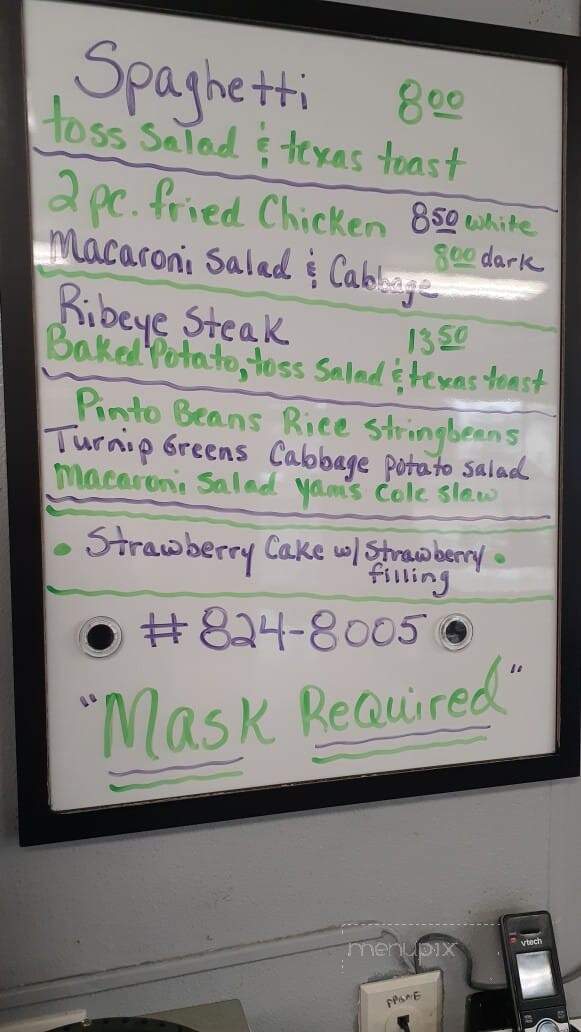 Spaghetti 8.00
toss Salad & texas toast
2 pc. fried Chicken 8.50 white
8.00 dark
Macaroni Salad & Cabbage
Ribeye Steak 13.50
Baked Potato, toss Salad & texas toast
Pinto Beans Rice Stringbeans
Turnip Greens Cabbage potato salad
Macaroni Salad yams Cole slaw
• Strawberry Cake w/ Strawberry •
filling
# 824-8005
"Mask Required"
menupix
vtech
PHONE